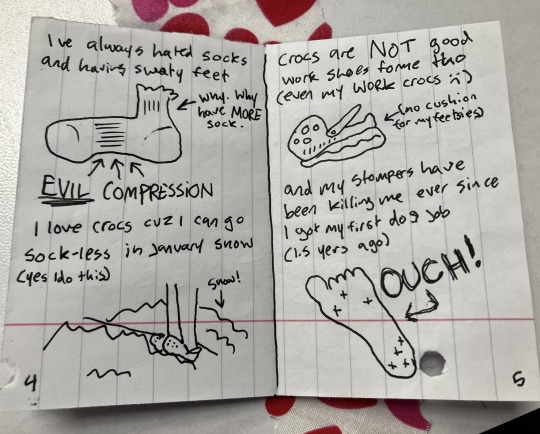 I've always hated socks
and having sweaty feet
why. why
have MORE
sock.
EVIL COMPRESSION
I love crocs cuz I can go
sock-less in january snow
(yes I do this)
snow!
4
Crocs are NOT good
work shoes for me tho
(even my WORK crocs :()
(no cushion
for my feetsies)
and my stompers have
been killing me ever since
I got my first dog job
(1.5 yers ago)
OUCH!
5